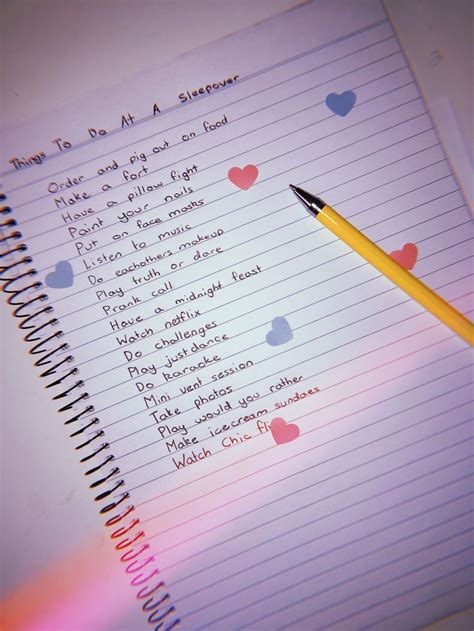 Things To Do At A Sleepover
Order and pig out on food
Make a fort
Have a pillow fight
Paint your nails
Put on face masks
Listen to music
Do eachothers makeup
Play truth or dare
Prank call
Have a midnight feast
Watch netflix
Do challenges
Play justdance
Do karaoke
Mini vent session
Take photos
Play would you rather
Make icecream sundaes
Watch Chic